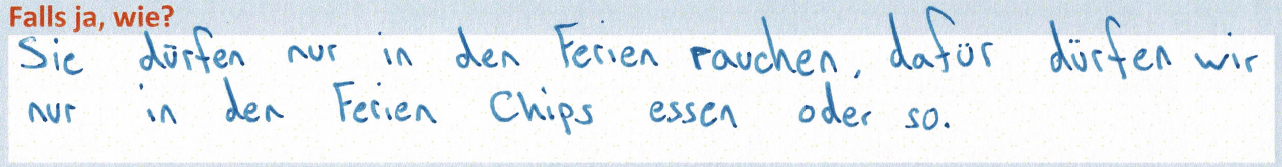 Falls ja, wie?
Sie dürfen nur in den Ferien rauchen, dafür dürfen wir
nur in den Ferien Chips essen oder so.